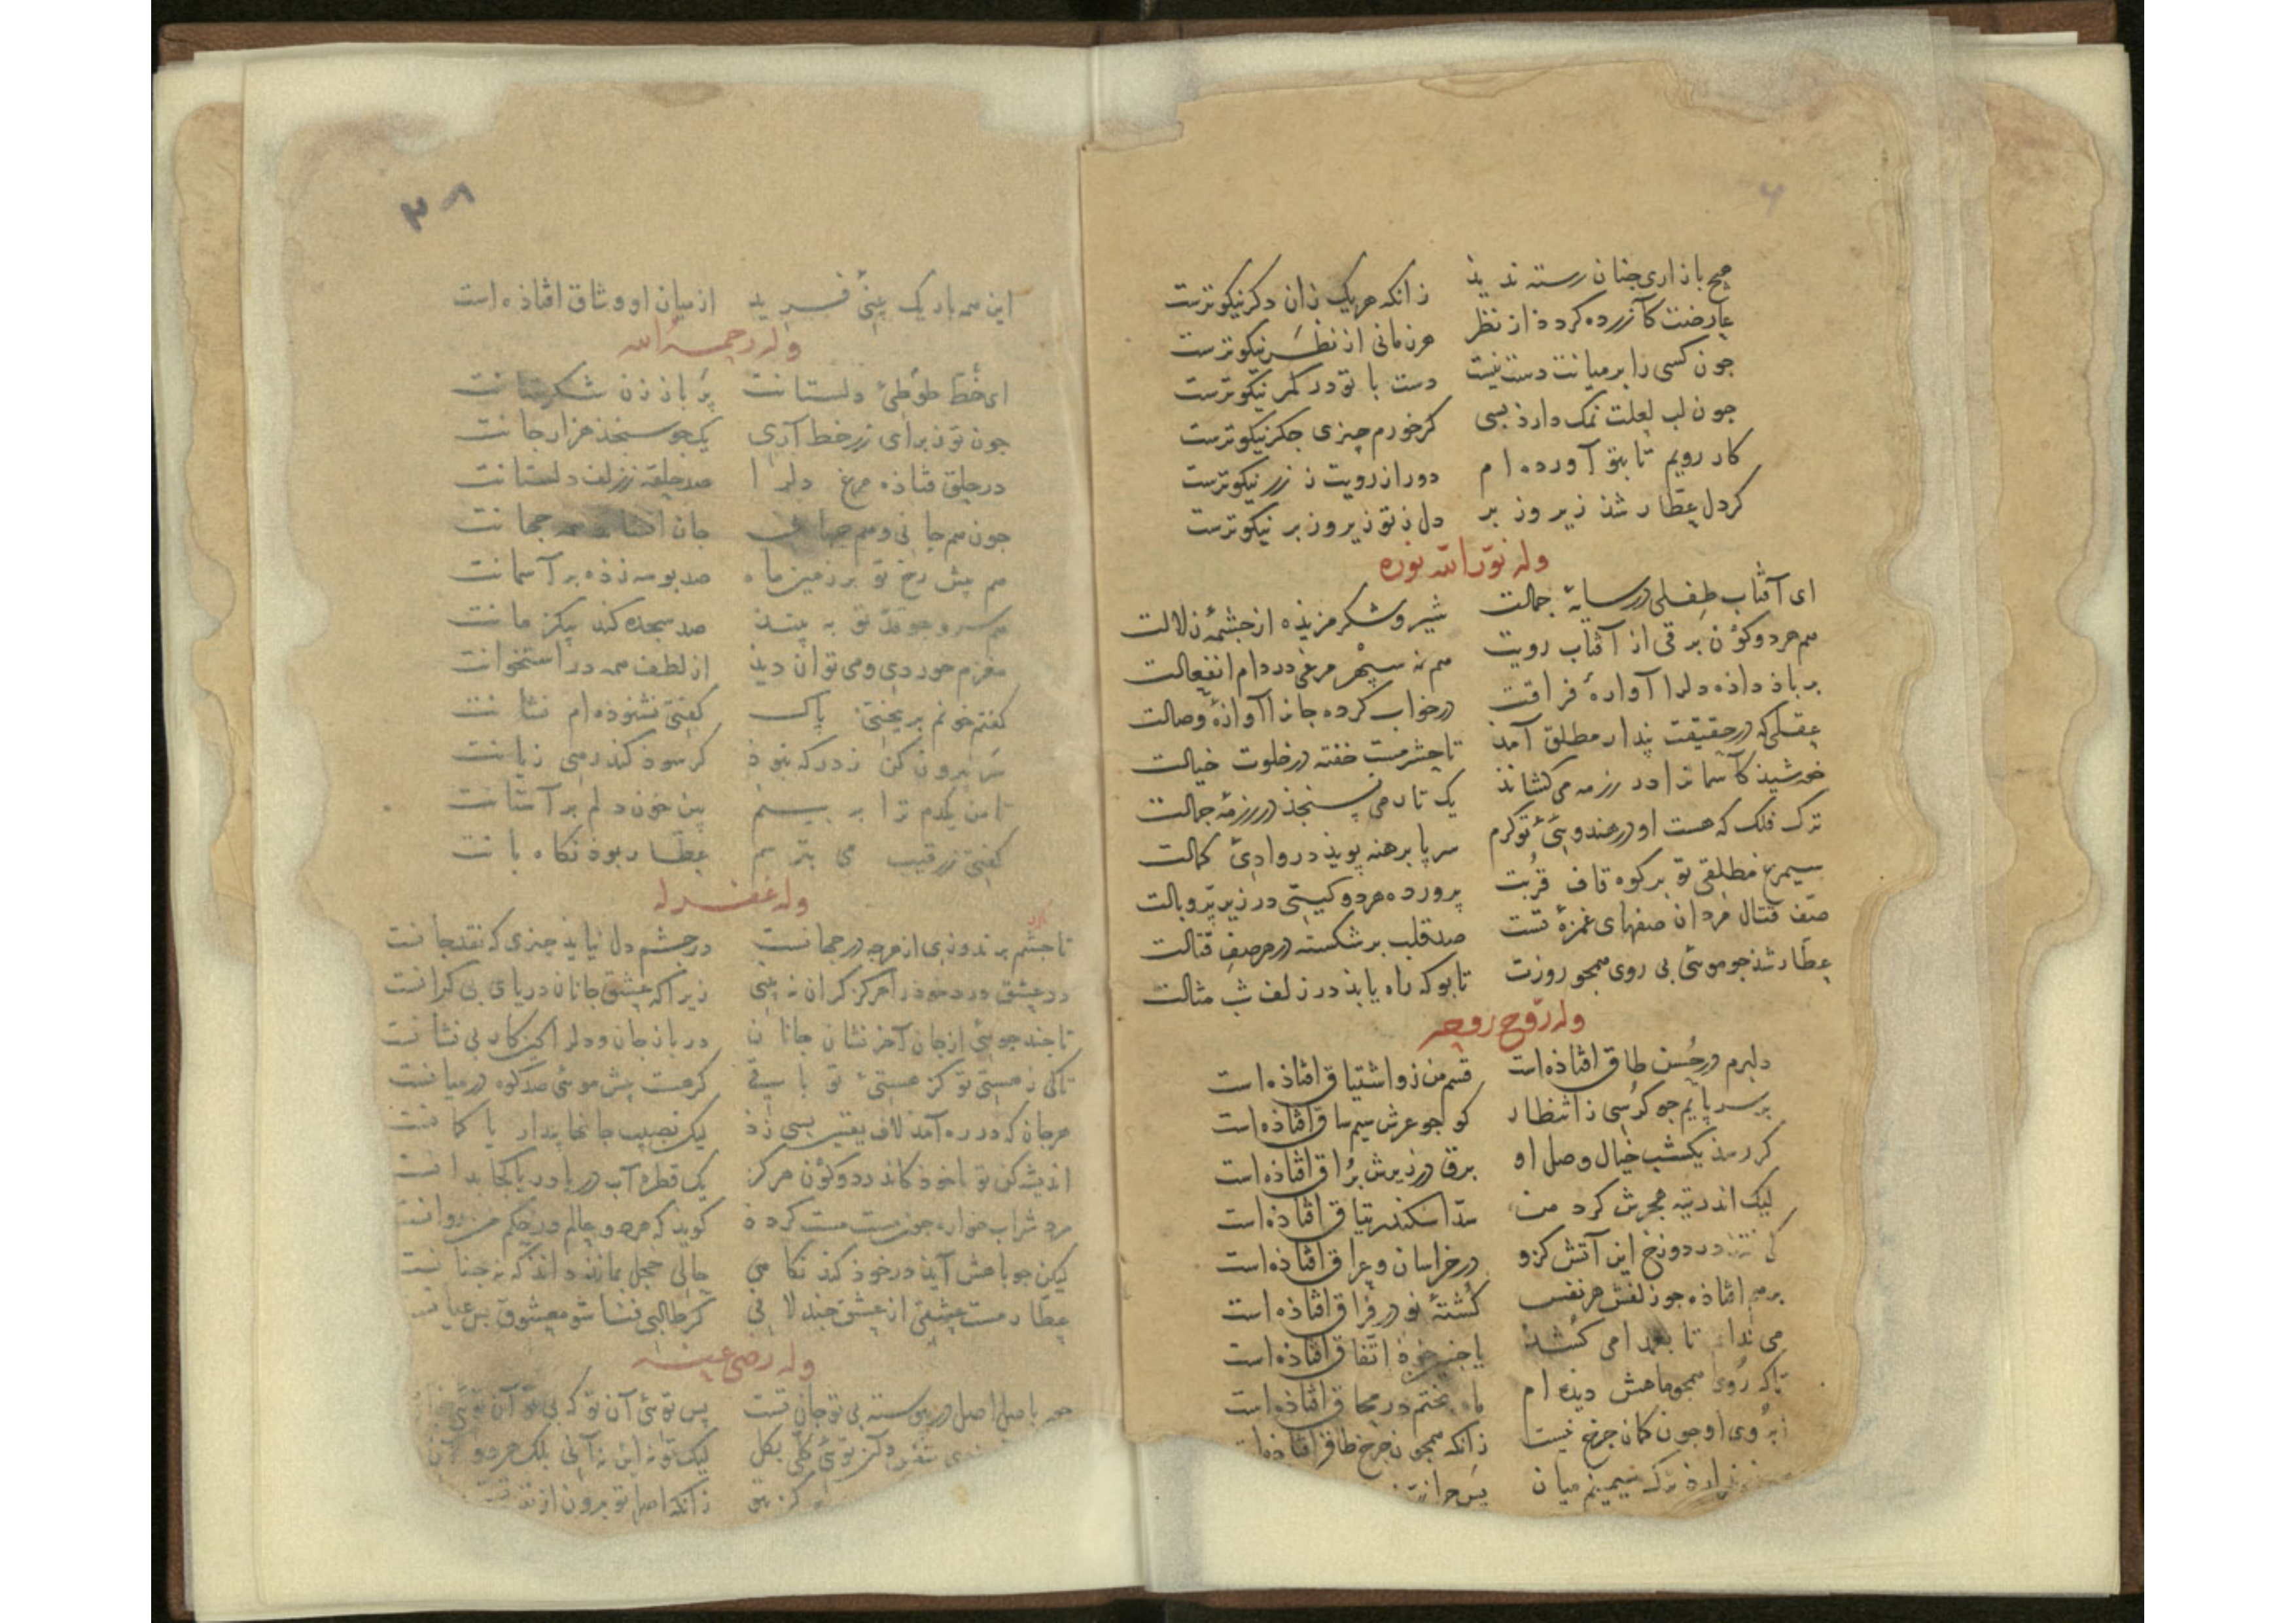 هیچ بازاری چنان رسته ندید زانکه هریک زان دکر نیکوترست
عارضت کازرده کردد از نظر هر زمانی از نظر نیکوترست
جون کسی را بر میانت دست نیست دست با تو در کمر نیکوترست
جون لب لعلت نمک دارد بسی کر خورم چیزی جکر نیکوترست
کار رویم تا بتو آورده ام دور از رویت ز زر نیکوترست
کر دل عطار شذ زیر و زبر دل ز تو زیر و زبر نیکوترست
وله نوّر الله نوره
ای آفتاب طفلی در سایهٔ جمالت شیر و شکر مزیذه از جشمهٔ زلالت
هم هر دو کوْن برقی از آفتاب رویت هم نه سپهر مرغی در دام انفعالت
بر باذ داذه دلرا آوارهٔ فراقت در خواب کرده جانرا آوازهٔ وصالت
عقلی که در حقیقت بیدار مطلق آمذ تا حشر مست خفته در خلوت خیالت
خورشیذ کآسمانرا در رزمه می کشاند یک تار می نسنجذ در رزمهٔ جمالت
ترک فلک که هست او در هندویئ تو کرم سر پا برهنه پویذ در وادئ کمالت
سیمرغ مطلقی تو بر کوه قاف قربت پرورده هر دو کیتی در زیر پرّ و بالت
صف قتال مردان صفهای غمزهٔ تست صد قلب بر شکسته در هر صف قتالت
عطار شذ جو موئی بی روی همجو روزت تا بو که راه یابذ در زلف شب مثالت
وله روّح روحه
دلبرم در حُسن طاق افتاذه است قسم من زو اشتیاق افتاذه است
بر سر پایم جو کرسی ز انتظار کو جو عرش سیم ساق افتاذه است
کر رسذ یکشب خیال وصل او برق در زیرش بُراق افتاذه است
لیک اندر تیه هجرش کرد من سدّ اسکندر یتاق افتاذه است
کی در دوزخ این آتش کزو در خراسان و عراق افتاذه است
بر هم افتاذه جو زلفش هر نفس کُشتهٔ نو در فراق افتاذه است
می نداند تا بعمدا می کشذ یا جنین خود اتّفاق افتاذه است
تا که روی همجو ماهش دیذه ام ماه بختم در محاق افتاذه است
ابروی او جون کمان جرخ نیست زانکه همجون جرخ طاق افتاذه است
ترک سیمینم میان بس
۳۸
این همه باریک بینی فرید از میان او وثاق افتاذه است
وله رحمه الله
ای خط طوطئ دلستانت پر باز زن شکرستانت
جون تو ز برای زر خط آری یک جو سنجذ هزار جانت
در حلق فتاذه مرغ دلرا صد حلقه ز زلف دلستانت
جون هم جانی و هم جهانی جان همه جهانت
هم پیش رخ تو بر زمین ماه صد بوسه زذه بر آسمانت
هم سرو جو قد تو به بیند صد سجده کند بیکزمانت
مغزم خوردی و می توان دیذ از لطف همه در استخوانت
کفتم خونم بریختی پاک کفتی نشنوذه ام نشانت
سر بیرون کن ز در که نبوذ کر سود کند رهی زیانت
تا من یکدم ترا به بینم بین خون دلم بر آستانت
کفتی ز رقیب می بترسم عطار بوذ نکاه بانت
وله غفر له
تا جشم بر ندوزی از هرجه در جهانست در جشم دل نیایذ چیزی که نقد جانست
در عشق درد خوذ را هرکز کران نه بینی زیرا که عشق جانان دریای بی کرانست
تا جند جوئی از جان آخر نشان جانان در باز جان و دل را کین کار بی نشانست
تا کی ز هستی تو کز هستی تو باقی کر هست بیش موئی صد کوه در میانست
هر جان که در ره آمذ لاف یقین بسی زذ لیکن نصیب جانها پندار یا کمانست
اندیشه کن تو با خوذ کاندر دو کوْن هرکز یک قطره آب دریا دریا کجا بدانست
مرد شراب خواره جون مست مست کردذ کویذ که هر دو عالم در حکم من روانست
لیکن جو باهش آیذ در خوذ کند نکاهی حالی خجل بماند داند که نه جنانست
عطار مست عشقی از عشق جند لافی کر طالبی فنا شو معشوق بس عیانست
وله رضی عنه
با اصل اصل پیوسته بی تو جان تست پس توئی آن تو که بی تو آن توئی
توئی کلی بکل لیک تو نه این نه آنی بلک هر دو آن
زانکه اصل تو برون از